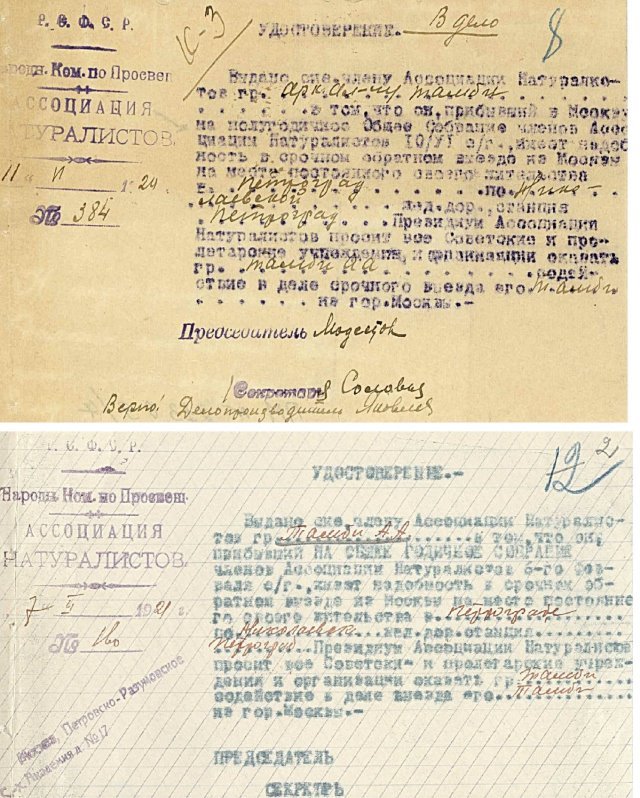 Р. С. Ф. С. Р.
Народн. Ком. по Просвещ
АССОЦИАЦИЯ
НАТУРАЛИСТОВ.
11 " VI 1920
№ 384
К-3
В дело
8
УДОСТОВЕРЕНИЕ.
Выдано сие члену Ассоциации Натурали-
тов гр. Тамби
в том, что он, прибывший в Москву
на полугодичное Общее Собрание членов Ассо-
циации Натуралистов 10/VI с/г., имеет надоб
ность в срочном обратном выезде из Москвы
на место постоянного своего жительства
в Петроград по Нико-
лаевской жел.дор., станция
Петроград Президиум Ассоциации
Натуралистов просит все Советские и про-
летарские учреждения и организации оказать
гр. Тамби А А содей-
ствие в деле срочного выезда его Тамби
из гор. Москвы.-
Председатель Модестов
Секретарь
Верно: Делопроизводитель Яковлев
Р. С. Ф. С. Р.
Народн. Ком. по Просвещ
АССОЦИАЦИЯ
НАТУРАЛИСТОВ.
7 - II 1921 г.
№
Москва, Петровско-Разумовское
с-х. Академия д. №17
12 2
УДОСТОВЕРЕНИЕ.-
Выдано сие члену Ассоциации Натуралис-
тов гр. Тамби А.А в том, что он,
прибывший НА ОБЩЕЕ ГОДИЧНОЕ СОБРАНИЕ
членов Ассоциации Натуралистов 6-го Фев-
раля с/г., имеет надобность в срочном об-
ратном выезде из Москвы на место постоянно
го своего жительства в Петроград
по Николаевск жел.дор.станция
Петроград Президиум Ассоциации Натуралистов
просит все Советски- и пролетарские учреж-
дения и организации оказать гр. Тамби
содействие в деле выезда его Тамби
из гор. Москвы.-
ПРЕДСЕДАТЕЛЬ
СЕКРЕТРЬ